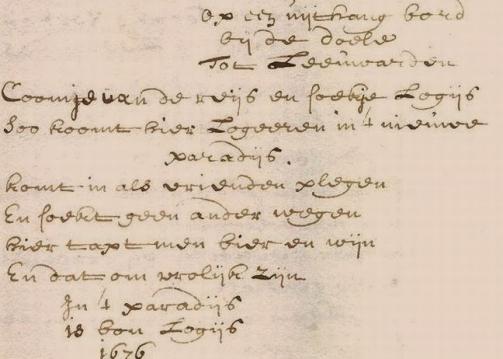 op een uijthang bord
bij de doele
Tot Leeuwarden
Coomje van de reijs en soekje Logijs
Soo koomt hier Logeeren in 't nieuwe
paradijs.
komt in als vrienden plegen
En soekt geen ander wegen
hier tapt men bier en wijn
En dat om vrolijk zijn
In 't paradijs
is bon Logijs
1676